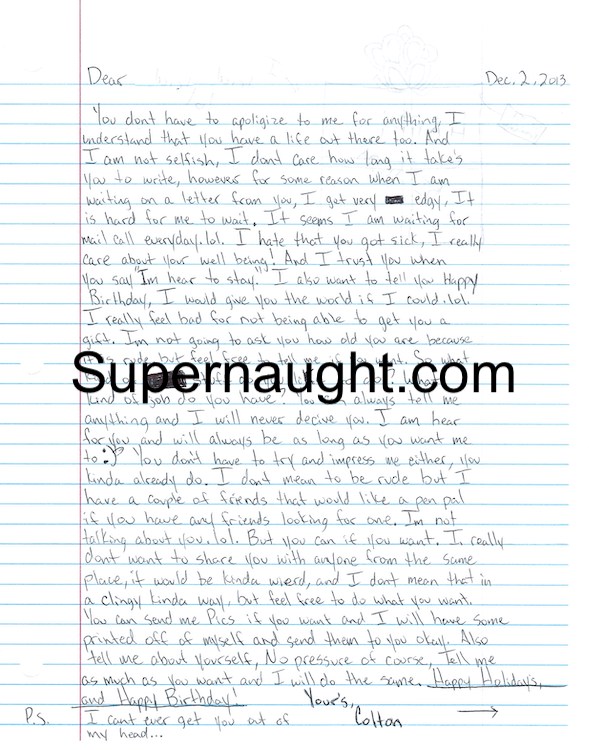 Dear
Dec. 2, 2013
You dont have to apoligize to me for anything, I
understand that you have a life out there too. And
I am not selfish, I dont care how long it take's
you to write, however for some reason when I am
waiting on a letter from you, I get very edgy, It
is hard for me to wait. It seems I am waiting for
mail call everyday.lol. I hate that you got sick, I really
care about your well being! And I trust you when
you say "Im hear to stay." I also want to tell you Happy
Birthday, I would give you the world if I could.lol.
I really feel bad for not being able to get you a
gift. Im not going to ask you how old you are because
rude but feel free to tell me if you want. So what
Supernaught.com
kind of job do you have, You can always tell me
anything and I will never decive you. I am hear
for you and will always be as long as you want me
to :) You don't have to try and impress me either, you
kinda already do. I dont mean to be rude but I
have a couple of friends that would like a pen pal
if you have any friends looking for one. Im not
talking about you.lol. But you can if you want. I really
dont want to share you with anyone from the same
place, it would be kinda wierd, and I dont mean that in
a clingy kinda way, but feel free to do what you want.
You can send me Pics if you want and I will have some
printed off of myself and send them to you okay. Also
tell me about yourself, No pressure of course, Tell me
as much as you want and I will do the same. Happy Holiday's,
and Happy Birthday!
Your's,
Colton
P.S. I cant ever get you out of
my head...